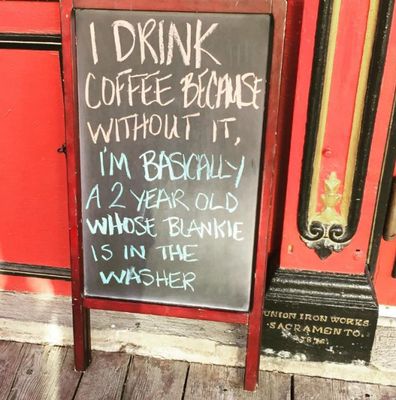 I DRINK
COFFEE BECAUSE
WITHOUT IT,
I'M BASICALLY
A 2 YEAR OLD
WHOSE BLANKIE
IS IN THE
WASHER
UNION IRON WORKS
SACRAMENTO.